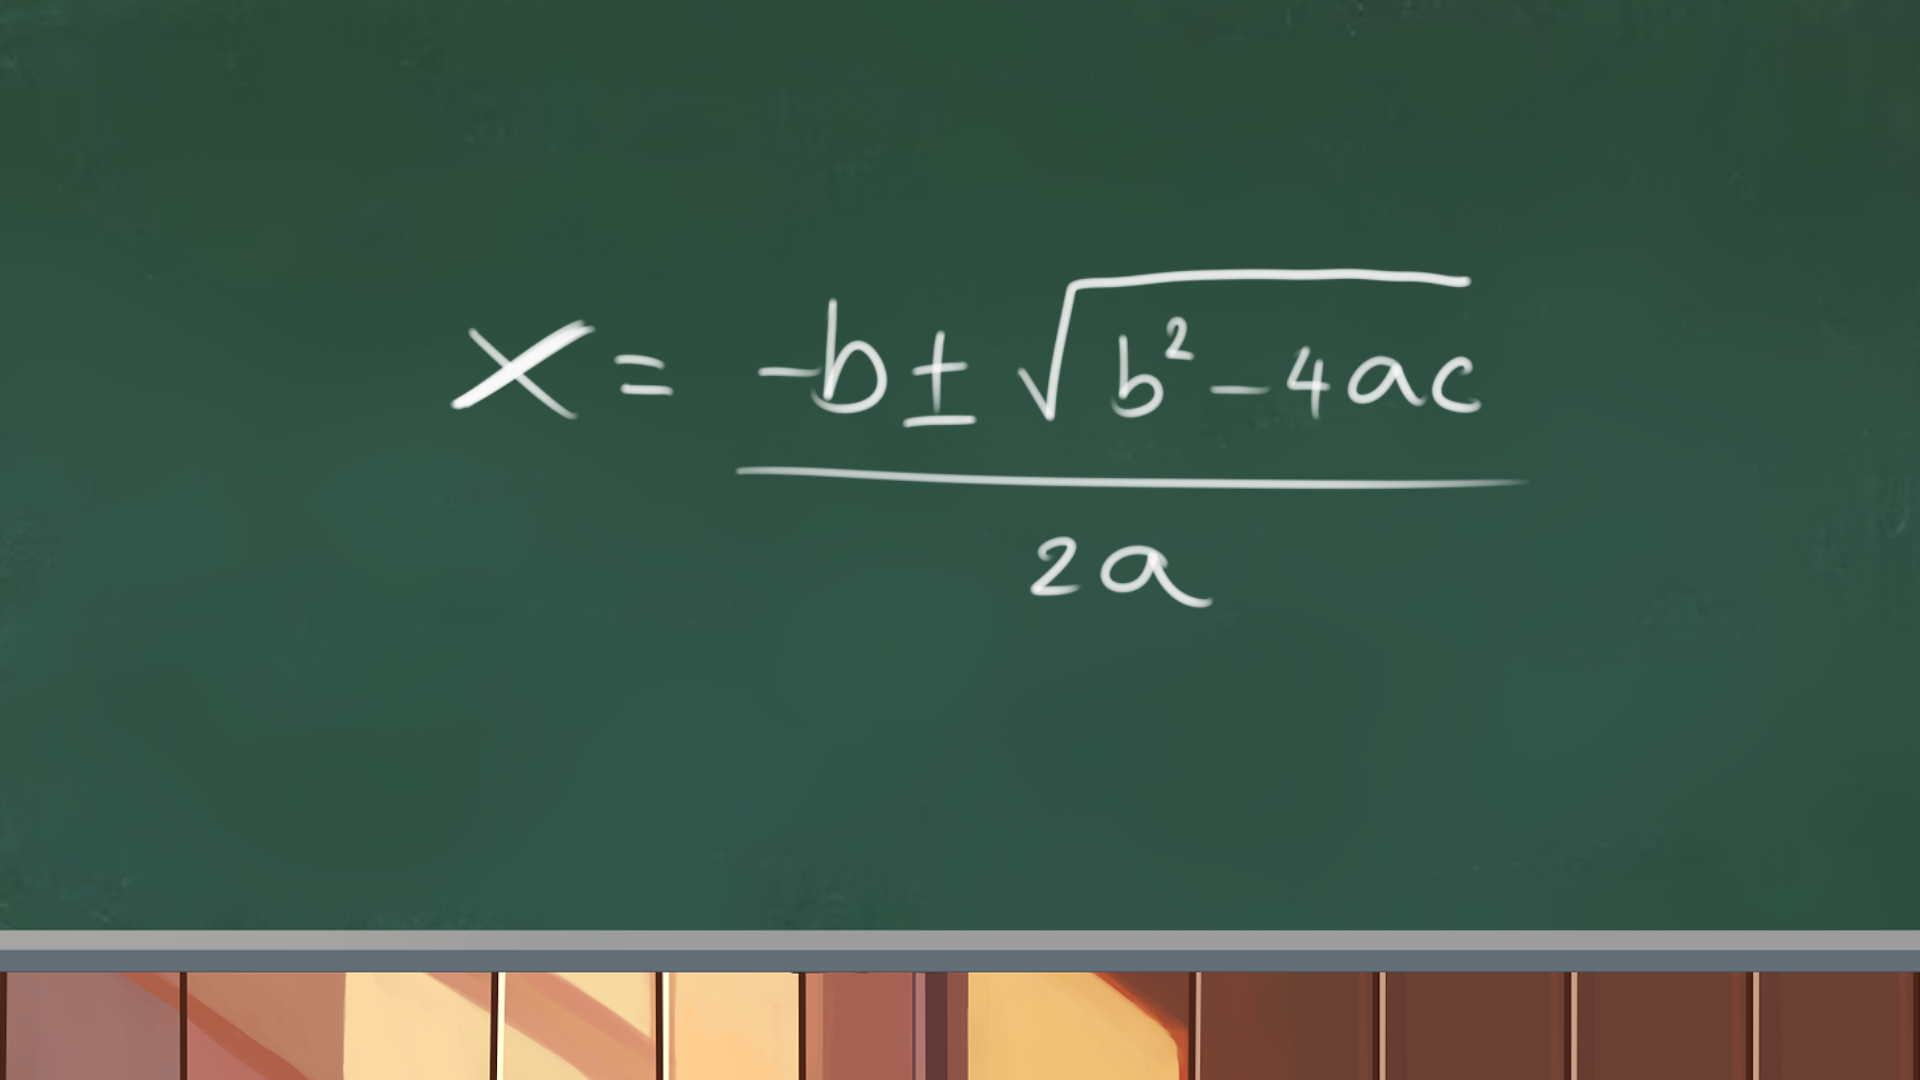 x = -b ± √b² - 4ac
2a